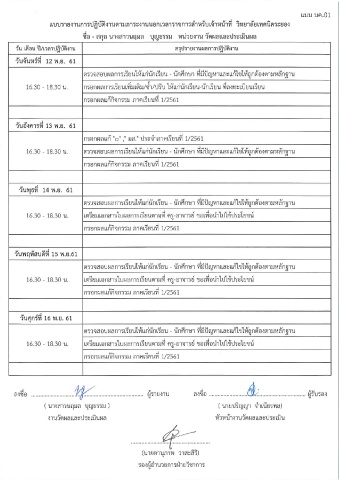 แบบ บค.01
แบบรายงานการปฏิบัติงานตามภาระงานนอกเวลาราชการสำหรับเจ้าหน้าที่ วิทยาลัยเทคนิคระยอง
ชื่อ - สกุล นางสาวนฤมล บุญธรรม หน่วยงาน วัดผลและประเมินผล
วัน เดือน ปี/เวลาปฏิบัติงาน สรุปรายงานผลการปฏิบัติงาน
วันจันทร์ที่ 12 พ.ย. 61
16.30 - 18.30 น. ตรวจสอบผลการเรียนให้แก่นักเรียน - นักศึกษา ที่มีปัญหาและแก้ไขให้ถูกต้องตามหลักฐาน
กรอกผลการเรียนเพิ่มเติม/ซ้ำ/ปรับ ให้แก่นักเรียน-นักเรียน ที่ลงทะเบียนเรียน
กรอกผลแก้กิจกรรม ภาคเรียนที่ 1/2561
วันอังคารที่ 13 พ.ย. 61
16.30 - 18.30 น. กรอกผลแก้ "0" ," มส." ประจำภาคเรียนที่ 1/2561
ตรวจสอบผลการเรียนให้แก่นักเรียน - นักศึกษา ที่มีปัญหาและแก้ไขให้ถูกต้องตามหลักฐาน
กรอกผลแก้กิจกรรม ภาคเรียนที่ 1/2561
วันพุธที่ 14 พ.ย. 61
16.30 - 18.30 น. ตรวจสอบผลการเรียนให้แก่นักเรียน - นักศึกษา ที่มีปัญหาและแก้ไขให้ถูกต้องตามหลักฐาน
เตรียมเอกสารใบผลการเรียนตามที่ ครู-อาจารย์ ขอเพื่อนำไปใช้ประโยชน์
กรอกผลแก้กิจกรรม ภาคเรียนที่ 1/2561
วันพฤหัสบดีที่ 15 พ.ย.61
16.30 - 18.30 น. ตรวจสอบผลการเรียนให้แก่นักเรียน - นักศึกษา ที่มีปัญหาและแก้ไขให้ถูกต้องตามหลักฐาน
เตรียมเอกสารใบผลการเรียนตามที่ ครู-อาจารย์ ขอเพื่อนำไปใช้ประโยชน์
กรอกผลแก้กิจกรรม ภาคเรียนที่ 1/2561
วันศุกร์ที่ 16 พ.ย. 61
16.30 - 18.30 น. ตรวจสอบผลการเรียนให้แก่นักเรียน - นักศึกษา ที่มีปัญหาและแก้ไขให้ถูกต้องตามหลักฐาน
เตรียมเอกสารใบผลการเรียนตามที่ ครู-อาจารย์ ขอเพื่อนำไปใช้ประโยชน์
กรอกผลแก้กิจกรรม ภาคเรียนที่ 1/2561
ลงชื่อ ผู้รายงาน ลงชื่อ ผู้รับรอง
( นางสาวนฤมล บุญธรรม )
งานวัดผลและประเมินผล หัวหน้างานวัดผลและประเมิน
รองผู้อำนวยการฝ่ายวิชาการ